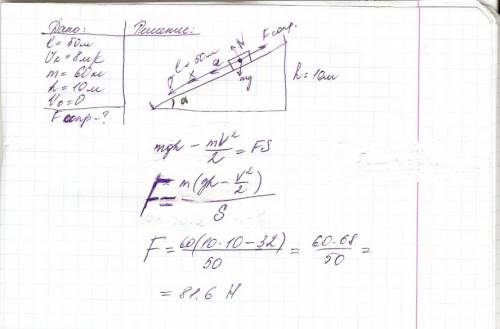 Дано:
l = 50м
Vк = 8м/с
m = 60кг
h = 10м
V₀ = 0
Fсопр - ?
Решение:
Fсопр.
N
l = 50м
a
x
mg
α
h = 10м
mgh - mV²/2 = FS
F = m(gh - V²/2)/S
F = 60(10·10-32)/50 = 60·68/50 =
= 81,6 Н